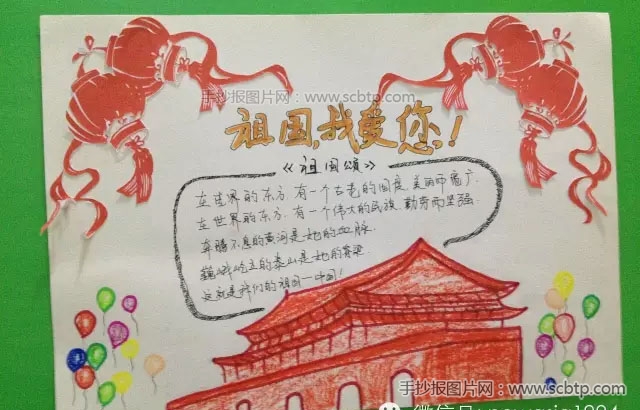 手抄报图片网：www.scbtp.com
祖国,我爱您!
《祖国颂》
在世界的东方,有一个古老的国度,美丽而宽广.
在世界的东方,有一个伟大的民族,勤劳而坚强.
奔腾不息的黄河是她的血脉.
巍峨屹立的泰山是她的脊梁.
这就是我们的祖国—中国!
手抄报图片网：www.scbtp.com
微信号